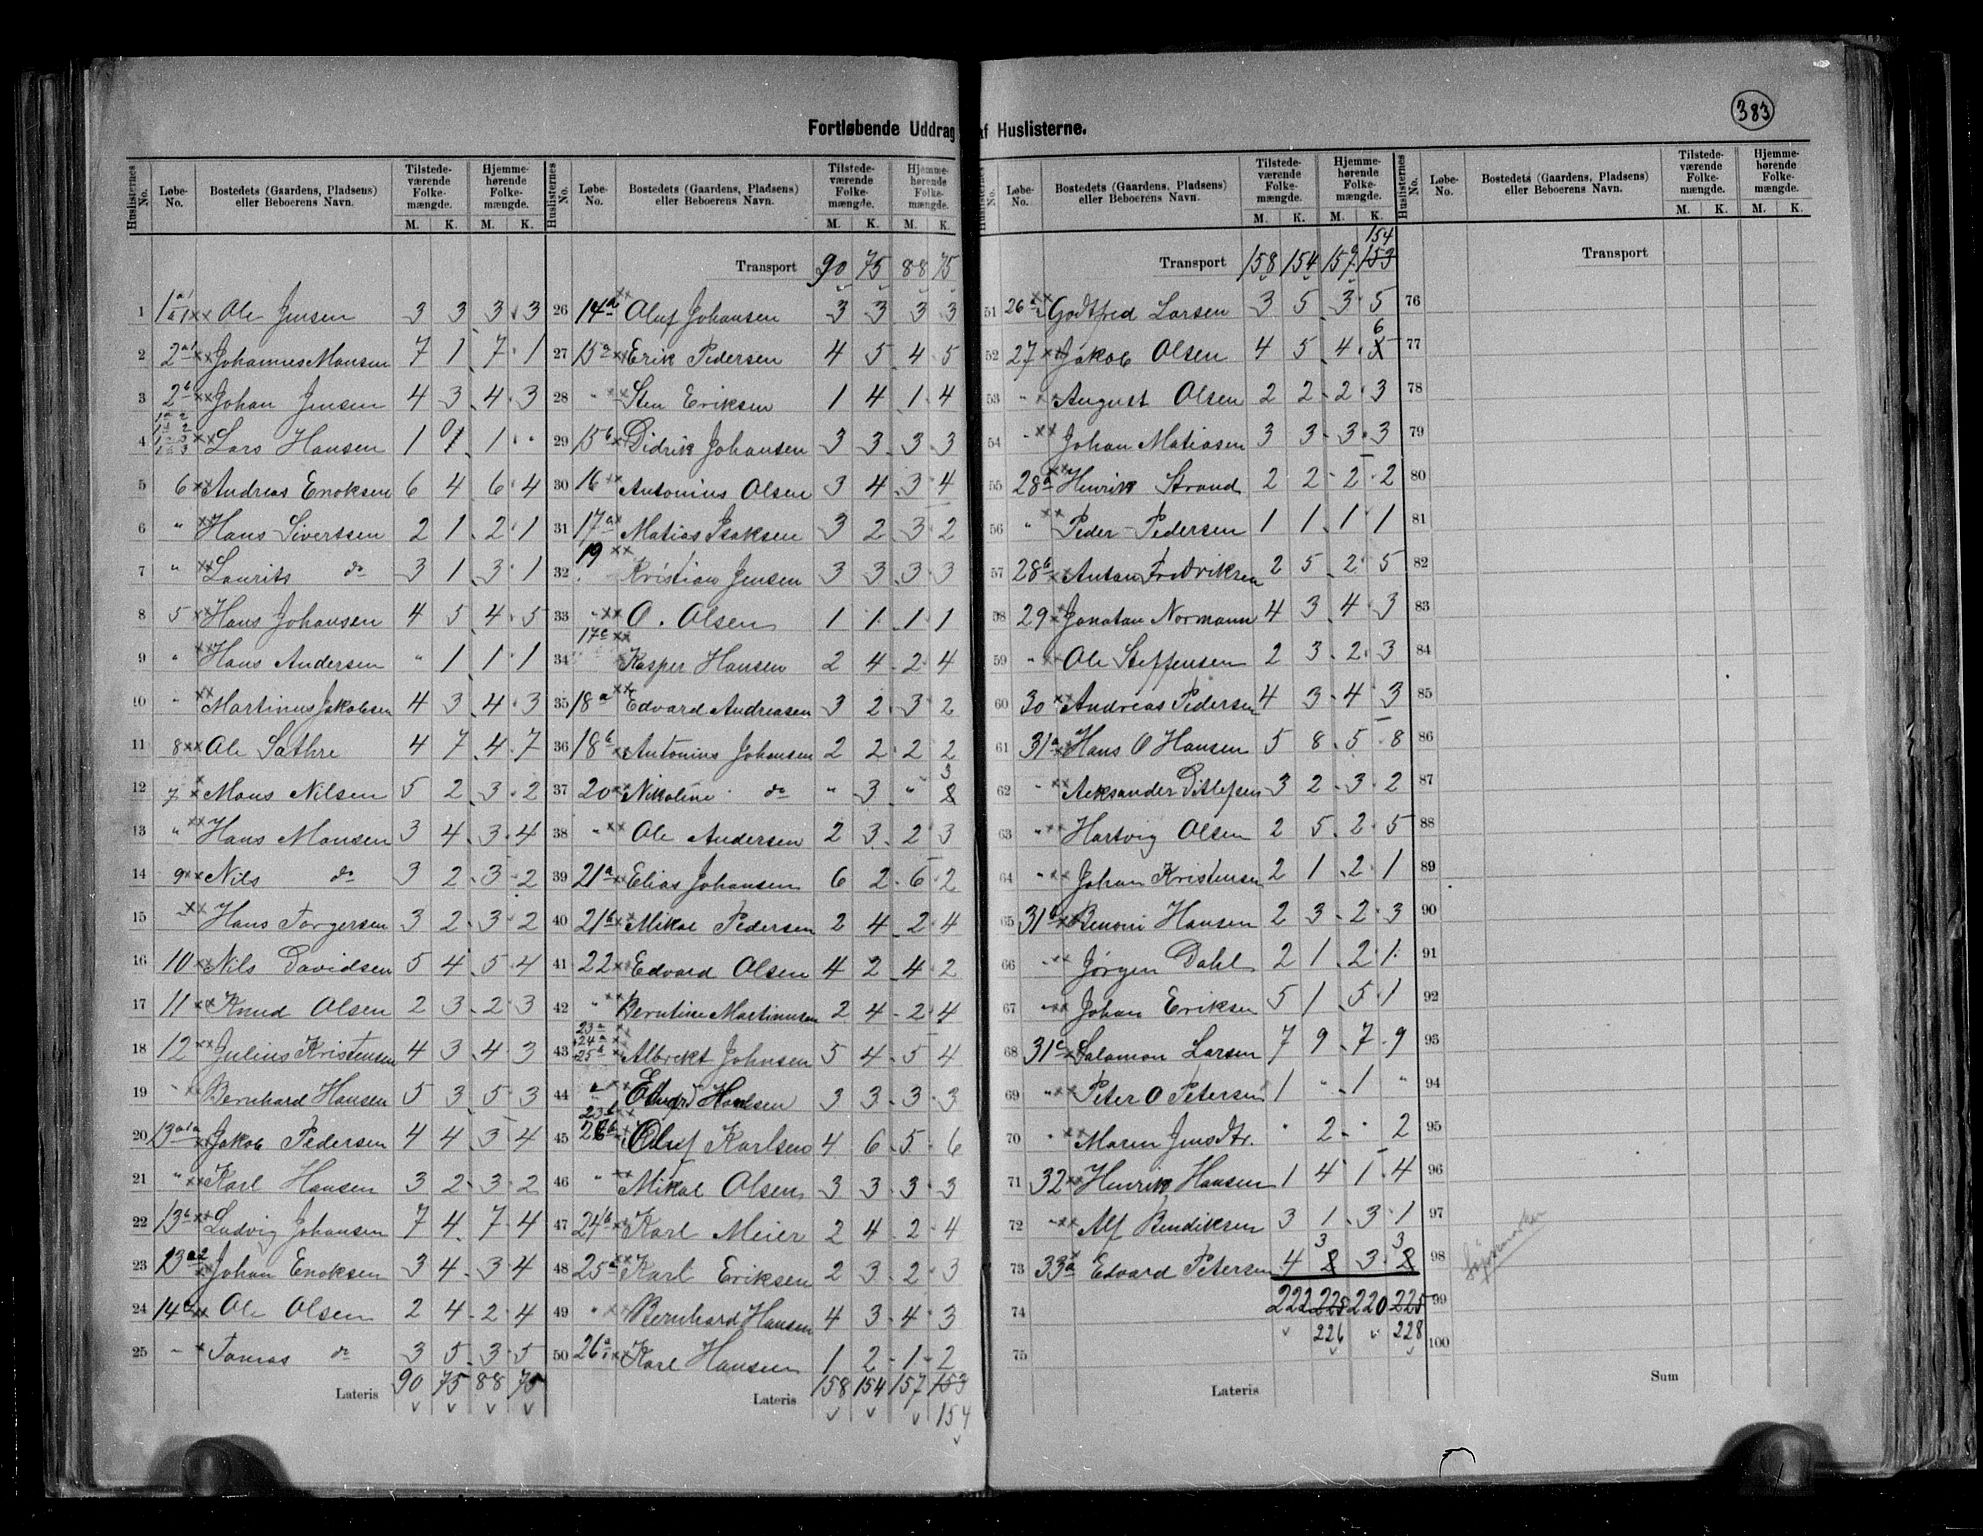 383
Fortløbende Uddrag af Huslisterne.
Huslisternes No. Løbe-No. Bostedets (Gaardens, Pladsens) eller Beboerens Navn. Tilstedeværende Folkemængde. M. K. Hjemmehørende Folkemængde. M. K.
1 Ole Jensen 3 3 3 3
2 Johannes Monsen 7 1 7 1
3 2b Johan Jensen 4 3 4 3
4 Lars Hansen 1 1
5 6 Andreas Enoksen 6 4 6 4
6 " Hans Sivertsen 2 1 2 1
7 " Laurits do 3 1 3 1
8 5 Hans Johansen 4 5 4 5
9 " Hans Andersen " 1 1 1
10 " Martinus Jakobsen 4 3 4 3
11 8 Ole Sathre 4 7 4 7
12 7 Mons Nilsen 5 2 3 2
13 " Hans Monsen 3 4 3 4
14 9 Nils do 3 2 3 2
15 " Hans Torgersen 3 2 3 2
16 10 Nils Davidsen 5 4 5 4
17 11 Knud Olsen 2 3 2 3
18 12 Julius Kristensen 4 3 4 3
19 " Bernhard Hansen 5 3 5 3
20 Jakob Pedersen 4 4 3 4
21 " Karl Hansen 3 2 3 2
22 13b Ludvig Johansen 7 4 7 4
23 13a2 Johan Enoksen 3 4 3 4
24 14a Ole Olsen 2 4 2 4
25 " Tomas do 3 5 3 5
Lateris 90 75 88 75
Transport 90 75 88 75
26 14b Oluf Johansen 3 3 3 3
27 15a Erik Pedersen 4 5 4 5
28 " Sten Eriksen 1 4 1 4
29 15b Didrik Johansen 3 3 3 3
30 16 Antonius Olsen 3 4 3 4
31 17a Matias Isaksen 3 2 3 2
32 19 Kristian Jensen 3 3 3 3
33 " O. Olsen 1 1 1 1
34 Kasper Hansen 2 4 2 4
35 18a Edvard Andreasen 3 2 3 2
36 18b Antonius Johansen 2 2 2 2
37 20 Nikoline do " 3 " 3
38 " Ole Andersen 2 3 2 3
39 21a Elias Johansen 6 2 6 2
40 21b Mikal Pedersen 2 4 2 4
41 22 Edvard Olsen 4 2 4 2
42 " Berntine Martinusen 2 4 2 4
43 23a 24a 25b Albrekt Johnsen 5 4 5 4
44 Hansen 3 3 3 3
45 Oluf Karlsen 4 6 5 6
46 " Mikal Olsen 3 3 3 3
47 24b Karl Meier 2 4 2 4
48 25a Karl Eriksen 2 3 2 3
49 " Bernhard Hansen 4 3 4 3
50 26a1 Karl Hansen 1 2 1 2
Lateris 158 154 157 153
154
Transport 158 154 157 153
154
51 26a2 Godtfred Larsen 3 5 3 5
52 27 Jakob Olsen 4 5 4 6
53 " August Olsen 2 2 2 3
54 " Johan Matiasen 3 3 3 3
55 28a Henrik Strand 2 2 2 2
56 " Peder Pedersen 1 1 1 1
57 28b Antan Fredriksen 2 5 2 5
58 29 Jonatan Normann 4 3 4 3
59 " Ole Steffensen 2 3 2 3
60 30 Andreas Pedersen 4 3 4 3
61 31a Hans O Hansen 5 8 5 8
62 " Aeksander Ditlefsen 3 2 3 2
63 " Hartvig Olsen 2 5 2 5
64 " Johan Kristensen 2 1 2 1
65 31b Benoni Hansen 2 3 2 3
66 " Jørgen Dahl 2 1 2 1
67 " Johan Eriksen 5 1 5 1
68 31c Salamon Larsen 7 9 7 9
69 " Peter O Petersen 1 " 1 "
70 " Maren Jensdtr. " 2 " 2
71 32 Henrik Hansen 1 4 1 4
72 " Alf Bendiksen 3 1 3 1
73 33a Edvard Petersen 4 3 3 3
74 222 225 220 225
226 228
75
Lateris
Transport
76
77
78
79
80
81
82
83
84
85
86
87
88
89
90
91
92
93
94
95
96
97
98
99
100
Sum